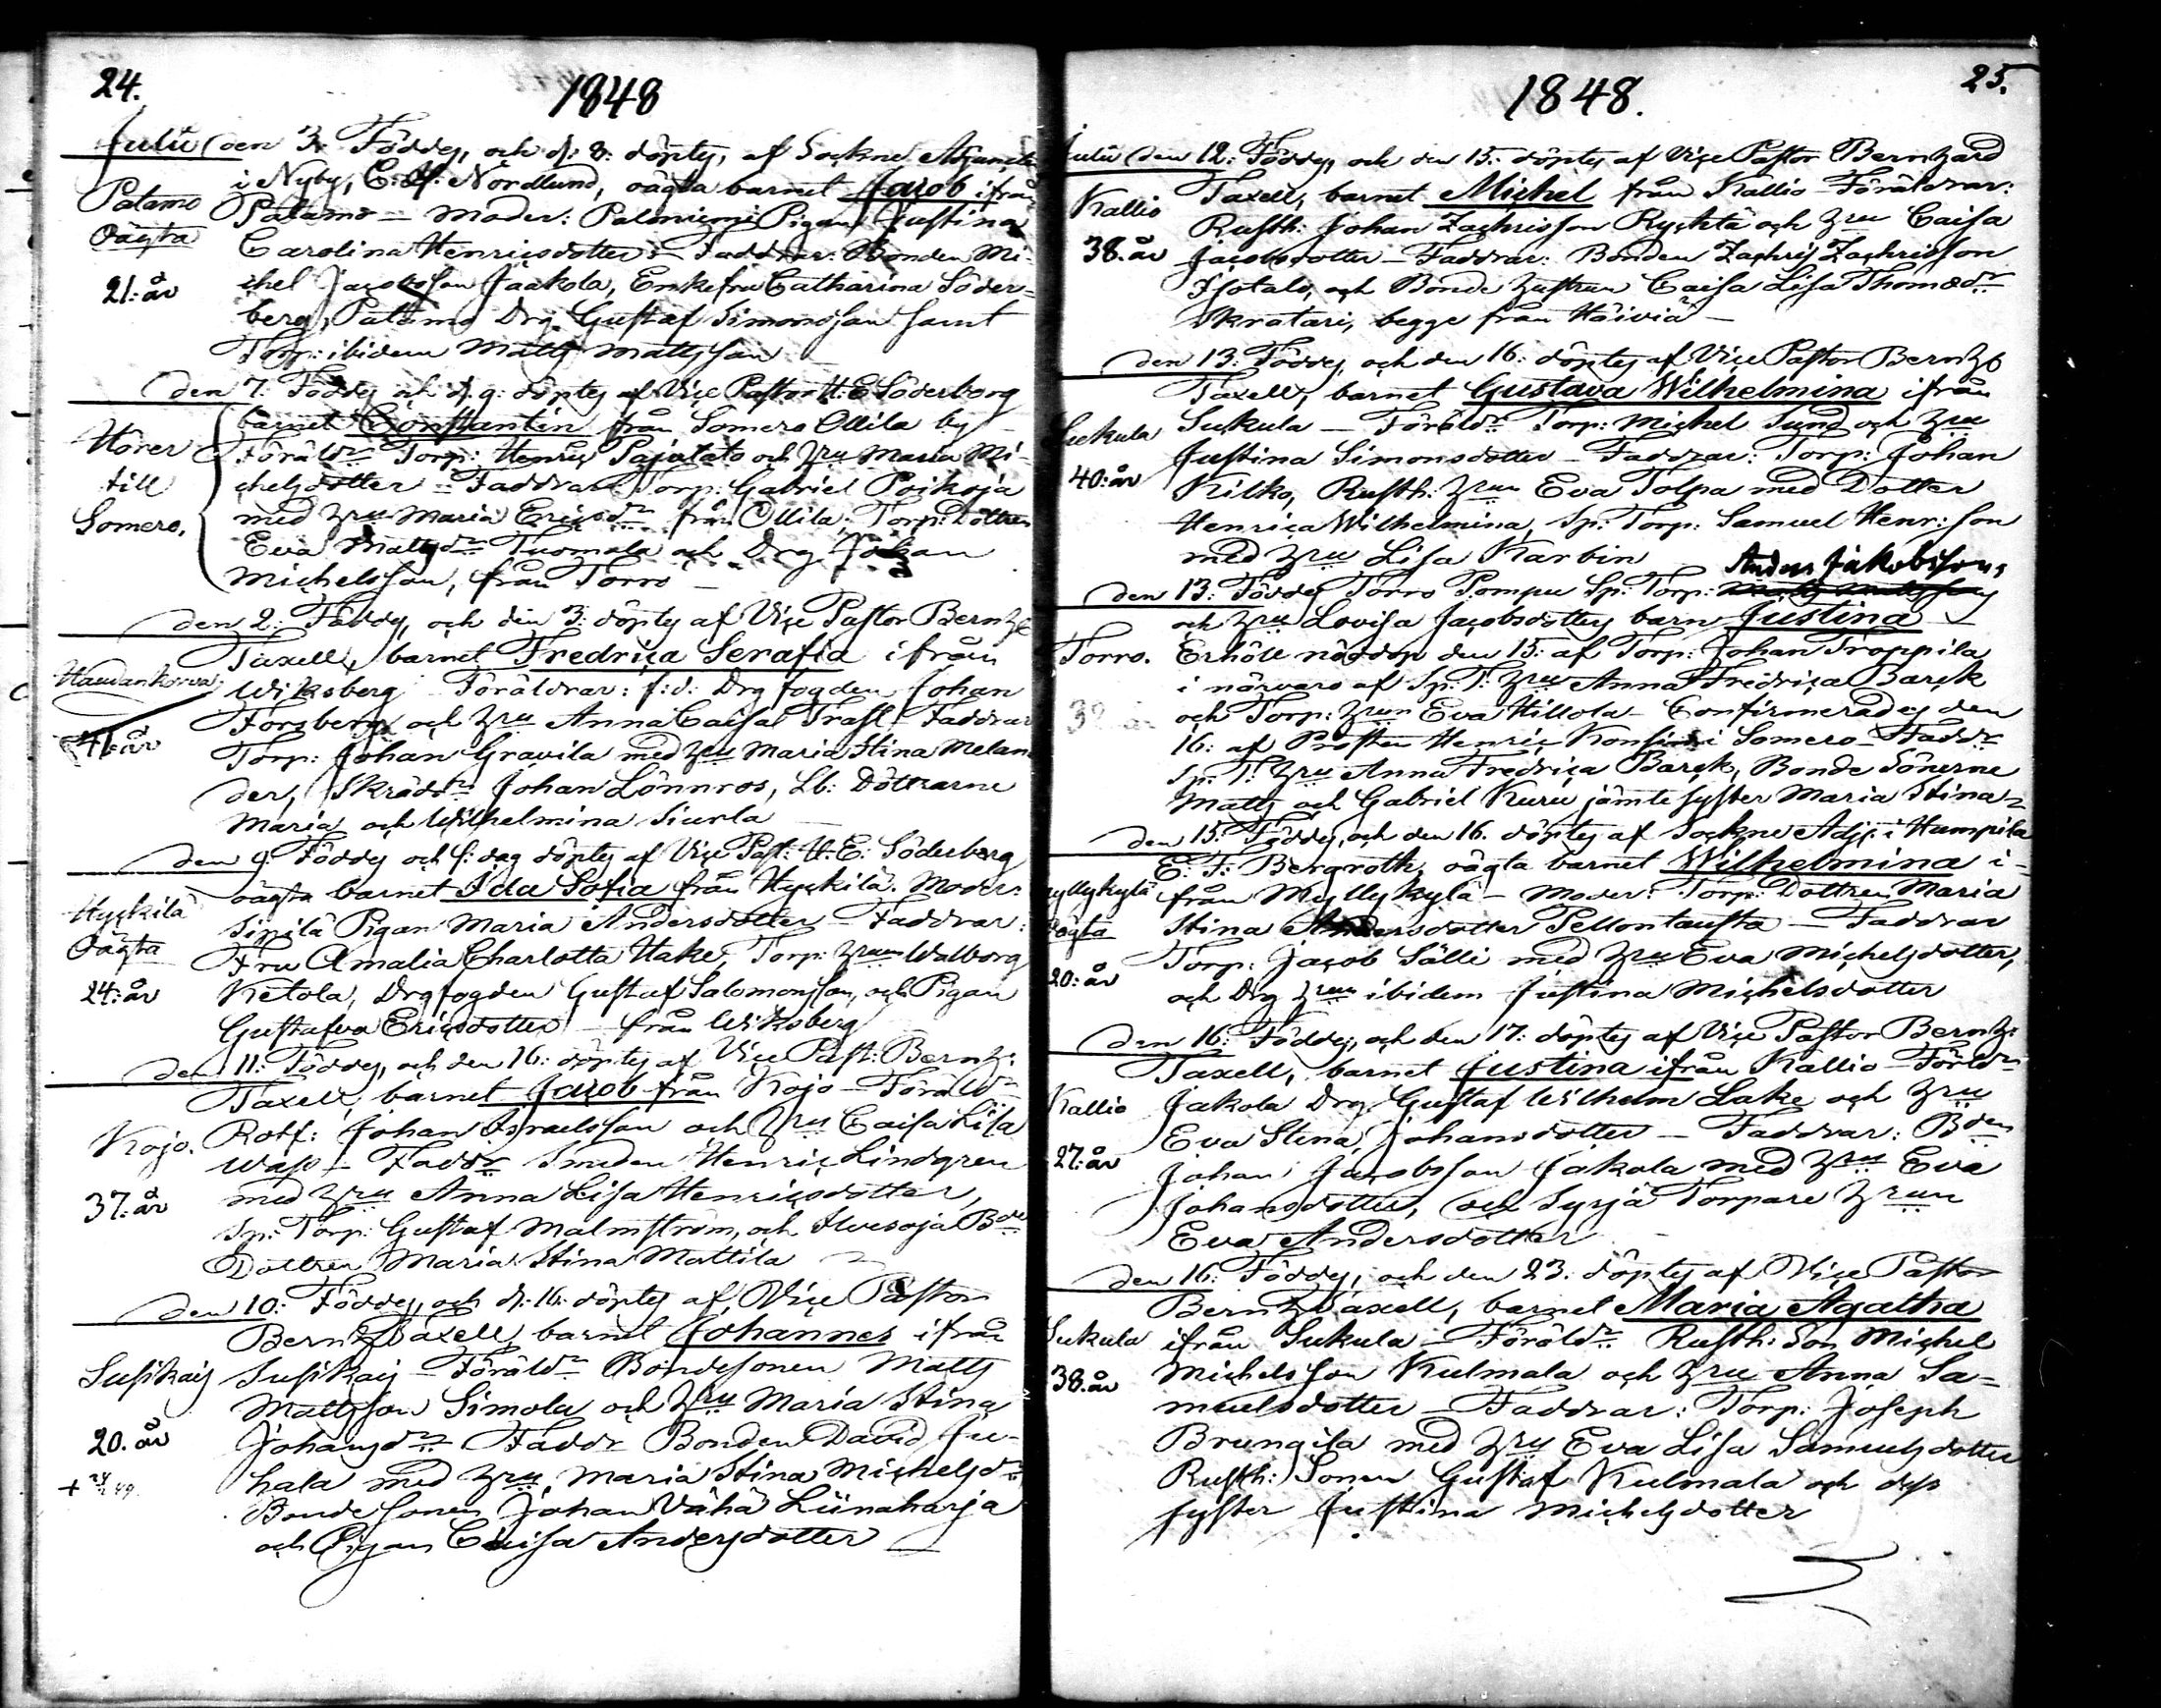 24.
1848
Julii den 3. Föddes, och d: 8: döptes, af Sockne Adjuncten
i Nyby, C: Nordlund, oägta barnet Jacob ifrån
Palamo
Palamo — Moder: Paloniemi Pigan Justina
Oägta
Carolina Henricsdotter — Faddrar: Bonden Mi-
21: år
chel Jacobsson Jaakola, Enkefru Catharina Söder=
berg, Palamo Drg Gustaf Simonsson samt
Torp: ibidem Matts Mattsson
den 7. Föddes och d. 9: döptes af Vice Pastor H: E Söderborg
barnet Constantin från Somero Ollila by
Hörer
Föräldr Torp: Henric Pajulato och hru Maria Mi-
till
chelsdotter — Faddrar Torp: Gabriel Poikoja
Somero.
med hru Maria Ericsdr från Ollila; Torp: Dottren
Eva Mattsdr Tuomola och Drg Johan
Michelsson, från Torro —
den 2: Föddes, och den 3: döptes af Vice Pastor Bernh:
Taxell, barnet Fredrica Serafia ifrån
Haudankorva
Wiksberg Föräldrar: f:d: Drg fogden Johan
Forsberg och hru Anna Caisa Trast Faddrar
41 år
Torp: Johan Gravila med hru Maria Stina Melan-
der, Skräddr Johan Lönnros, Lb: Döttrarne
Maria och Wilhelmina Siurla
den 9: Föddes och s: dag döptes af Vice Past: H: E: Söderberg
oägta barnet Ida Sofia från Hyckilä. Moder:
Hyckilä
Sipilä Pigan Maria Andersdotter — Faddrar:
Oägta
Fru Amalia Charlotta Hake, Torp: hrun Walborg
24: år
Ketola, Drgfogden Gustaf Salomonsson, och Pigan
Gustafva Ericsdotter — från Wiksberg
den 11: Föddes, och den 16: döptes af Vice Past: Bernh:
Taxell, barnet Jacob från Kojo — Föräldr
Kojo.
Rotf: Johan Israelsson och hru Caisa Lisa
Wass — Faddr Smeden Henric Lindgren
37: år
med hru Anna Lisa Henricsdotter,
Sp: Torp: Gustaf Malmström, och Suvioja Bde
Dottren Maria Stina Mattila
den 10: Föddes, och d: 16: döptes af Vice Pastor
Bernh Taxell, barnet Johannes ifrån
Susikais
Susikais — Föräldr Bondesonen Matts
Mattsson Simola och hru Maria Stina
20. år
Johansdr Faddr Bonden David Ju-
hala med hru Maria Stina Michelsdr
Bonde Sonen Johan Vähä Liinaharja
och Pigan Caisa Andersdotter —
25.
1848.
Julii den 12: Föddes, och den 15: döptes af Vice Pastor Bernhard
Taxell, barnet Michel från Kallio Föräldrar:
Kallio
Rusth: Johan Zachrisson Rychtä och hru Caisa
38. år
Jacobsdotter — Faddrar: Bonden Zachris Zachrisson
Isotalo, och Bonde hustrun Caisa Lisa Thomædr
Skratari, begge från Häiviä —
den 13: Föddes, och den 16: döptes af Vice Pastor Bernh
Taxell, barnet Gustava Wilhelmina ifrån
Sukula
Sukula — Föräldr Torp: Michel Sund och hru
Justina Simonsdotter — Faddrar: Torp: Johan
40: år
Kilko, Rusth: hrun Eva Tolpa med Dotter
Henrica Wilhelmina, Sp: Torp: Samuel Henr: son
med hru Lisa Karbin
Anders Jakobssons
den 13: Föddes Torro Pompu Sp: Torp: Matts Mattssons
och hru Lovisa Jacobsdotters barn Justina
Torro.
Erhöll nöddop den 15: af Torp: Johan Troppila
i närvaro af Sp: T: hru Anna Fredrica Barck
och Torp: hrun Eva Hillola — Confirmerades den
16: af Prosten Henric Konsin i Somero — Faddr
Sp: T: hru Anna Fredrica Barck, Bonde Sönerne
Matts och Gabriel Kuru jämte syster Maria Stina
den 15: Föddes, och den 16. döptes af Sockne Adj: i Humpila
E: F: Bergroth, oägta barnet Wilhelmina i-
Myllykylä
från Myllykylä — Moder: Torp: Dottren Maria
oägta
Stina Andersdotter Pellontausta — Faddrar
20: år
Torp: Jacob Sälli med hru Eva Michelsdotter,
och Drg hrun ibidem Justina Michelsdotter
den 16: Föddes, och den 17: döptes af Vice Pastor Bernh:
Taxell, barnet Justina ifrån Kallio — Föräldr
Kallio
Jakola Drg Gustaf Wilhelm Lake och hru
Eva Stina Johansdotter — Faddrar: Bden
27: år
Johan Jacobsson Jakola med hru Eva
Johansdotter, och Syrjä Torpare hrun
Eva Andersdotter
den 16: Föddes, och den 23: döptes af Vice Pastor
Bernh Taxell, barnet Maria Agatha
Sukula
ifrån Sukula — Föräldr Rusth: Son Michel
38: år
Michelsson Kulmala och hru Anna Sa=
muelsdotter — Faddrar: Torp: Joseph
Brungila med hru Eva Lisa Samuelsdotter
Rusth: Sonen Gustaf Kulmala och dess
syster Justina Michelsdotter